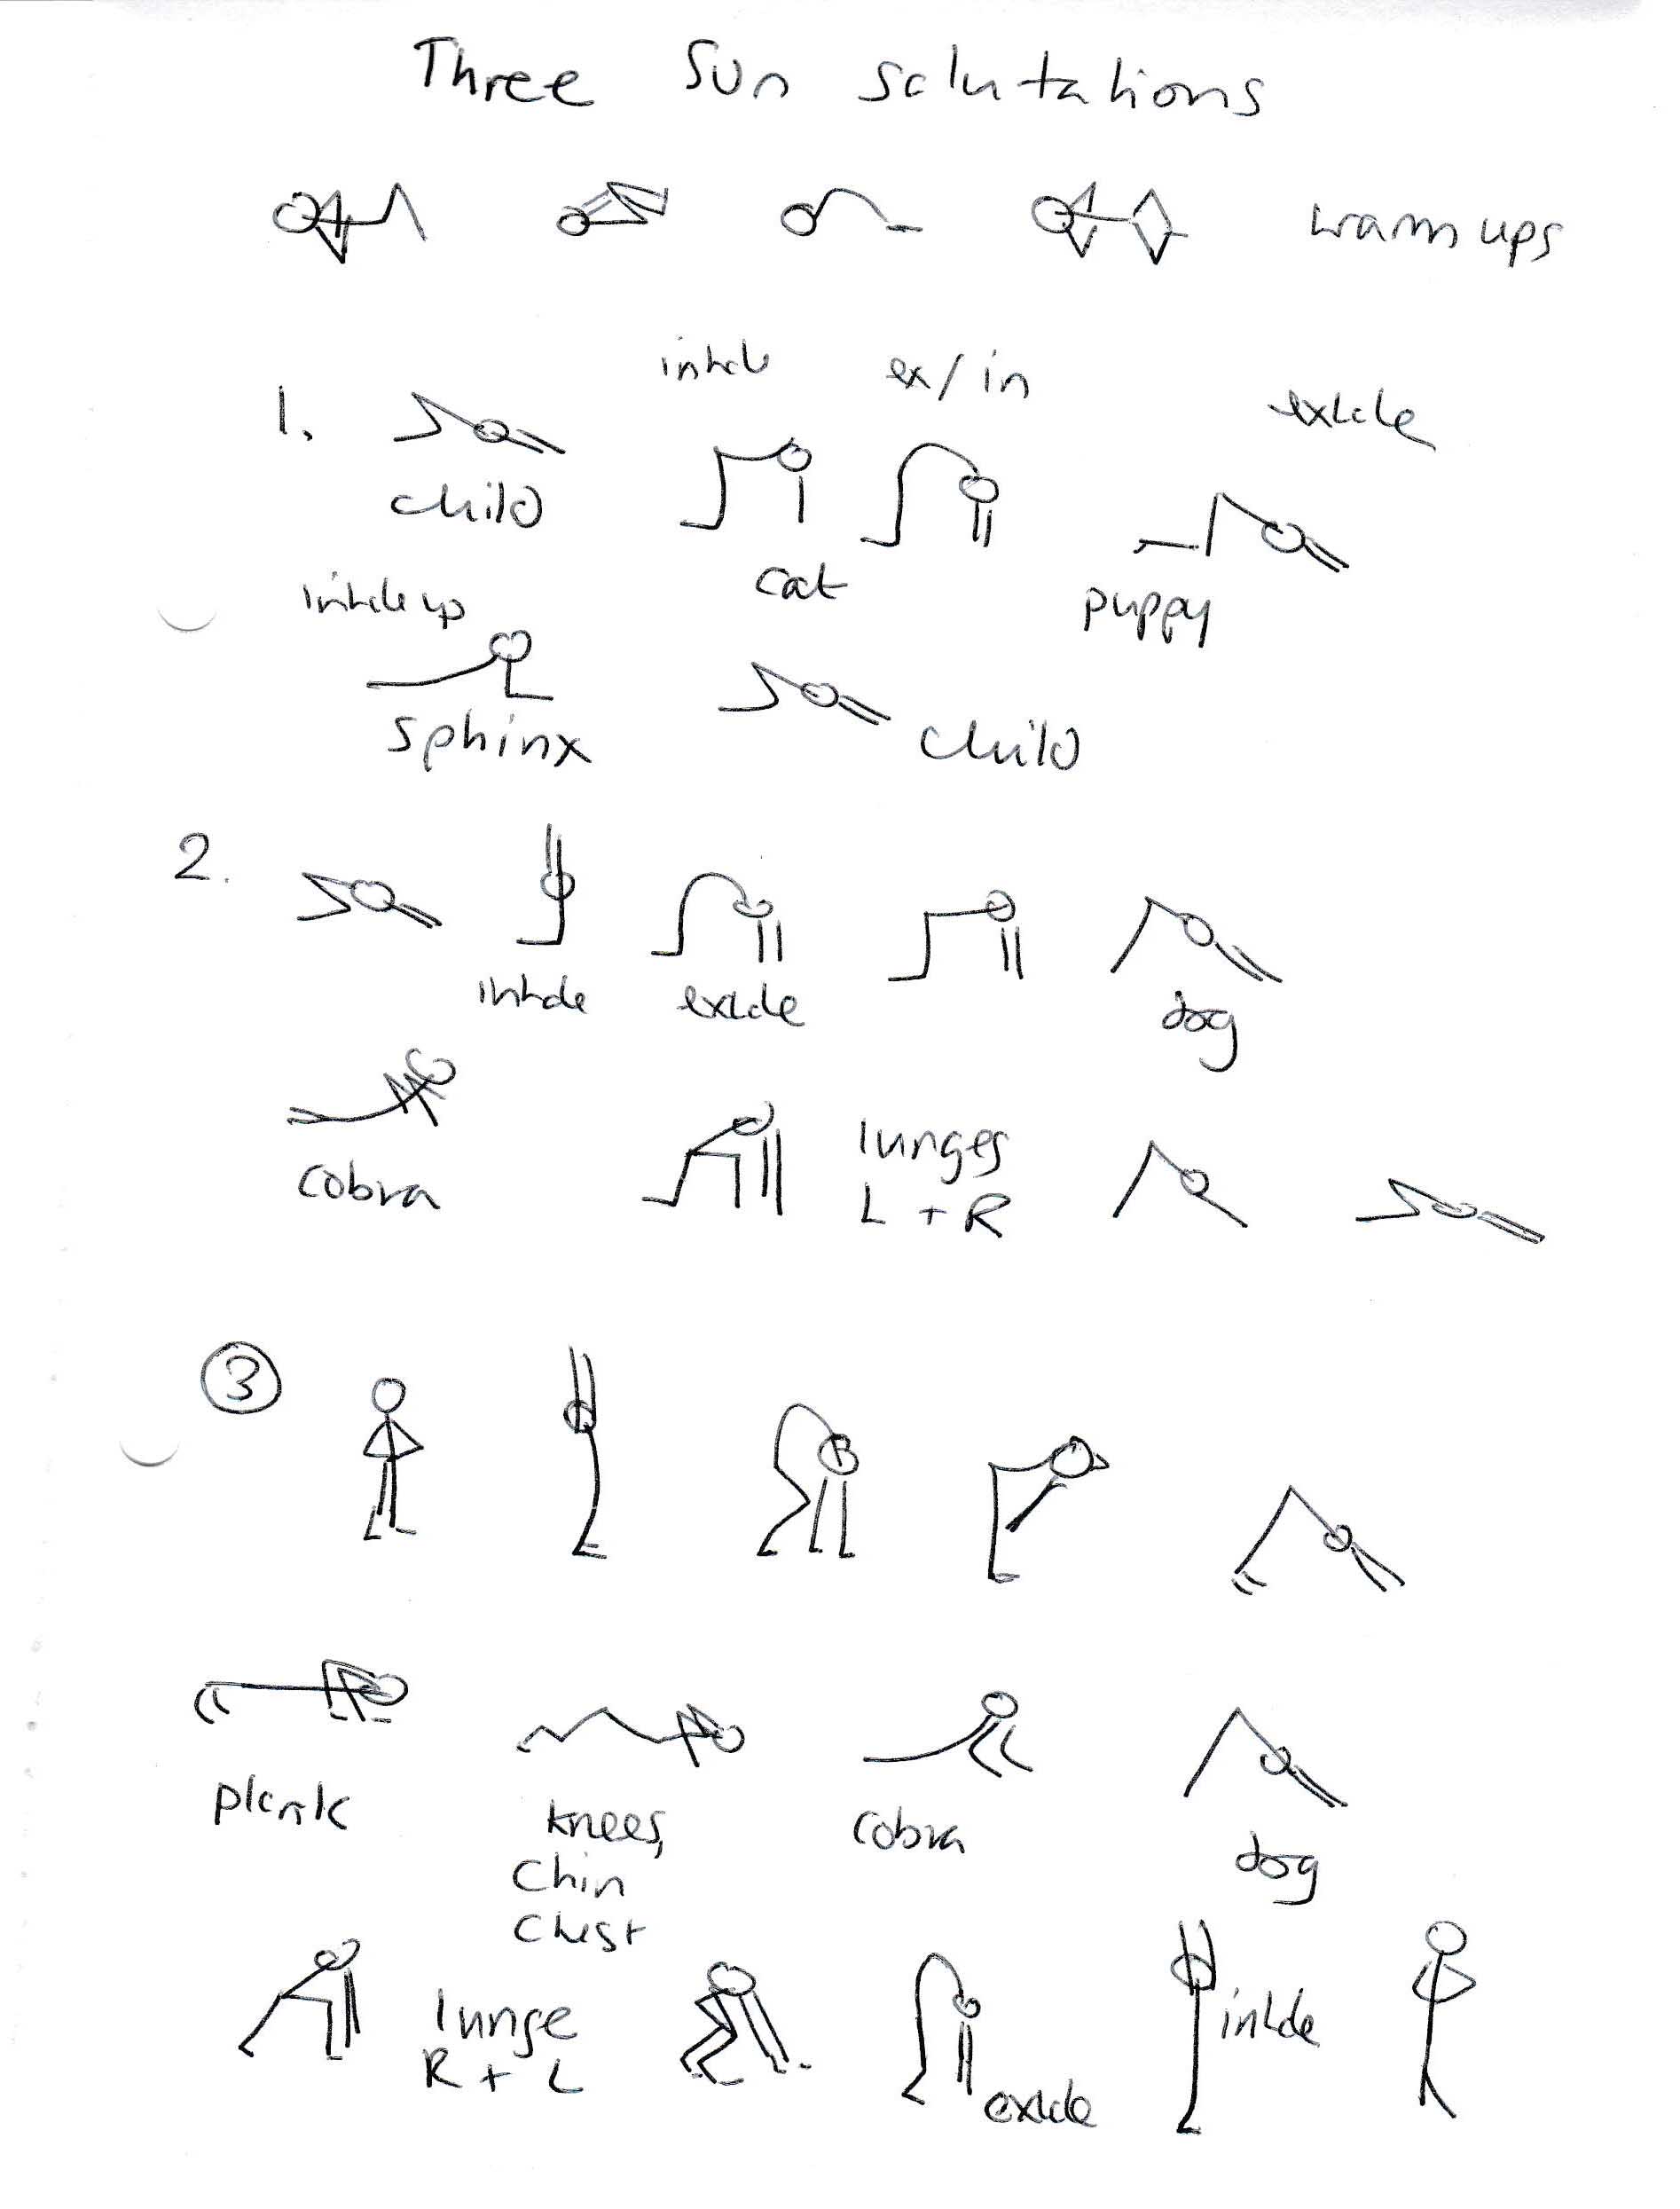 Three Sun Salutations
warm ups
inhale ex/in exhale
1.
child cat puppy
inhale up
sphinx child
2.
inhale exhale dog
cobra lunges
L + R
3
plank knees, cobra dog
chin
chest
lunge inhale
R + L exhale